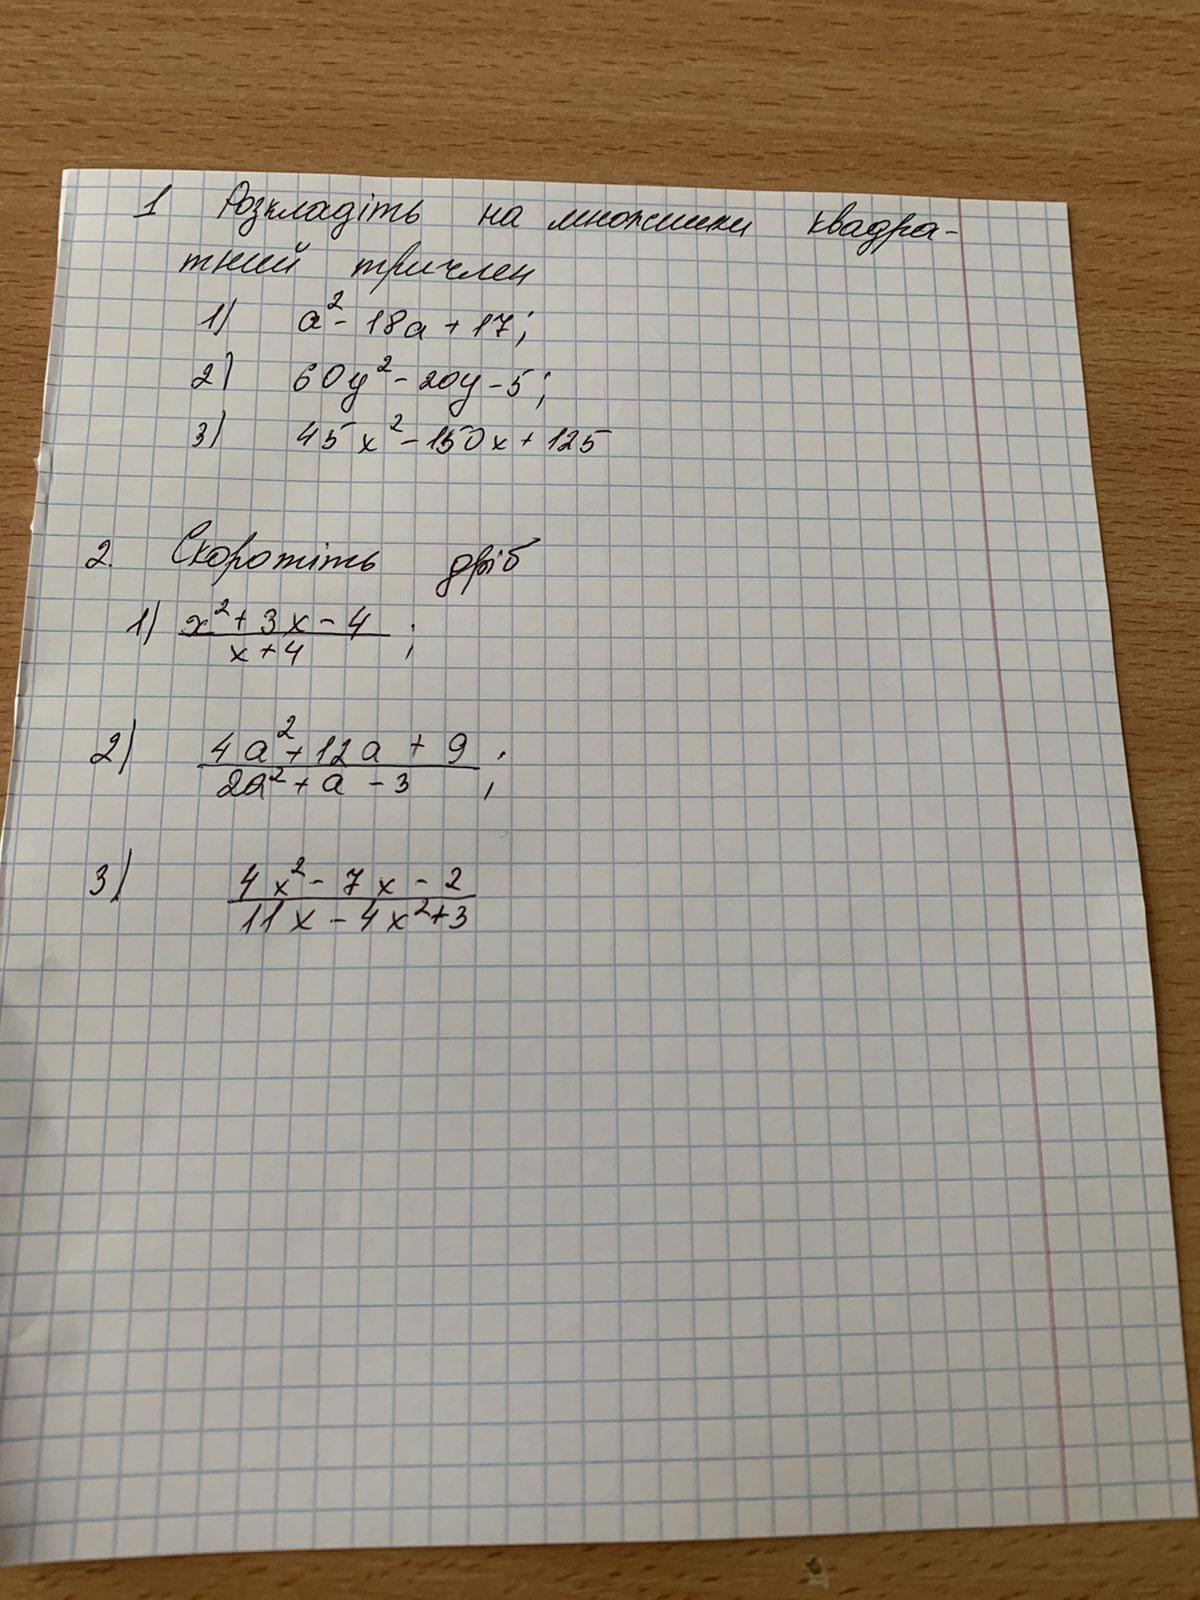 1 Розкладіть на множники квадра-
тний тричлен
1) a² - 18a + 17;
2) 60y² - 20y - 5;
3) 45x² - 150x + 125
2. Скоротіть дріб
1) x² + 3x - 4 ;
x + 4
2) 4a² + 12a + 9 ;
2a² + a - 3
3) 4x² - 7x - 2
11x - 4x² + 3